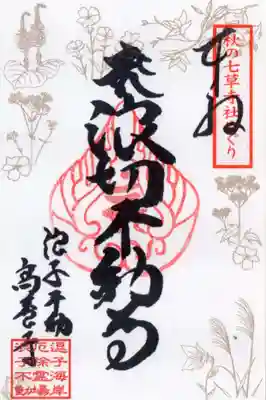 秋の七草寺社めぐり
奉拝
波切不動尊
浪子不動
高養寺
逗子海岸
厄除霊場
浪子不動